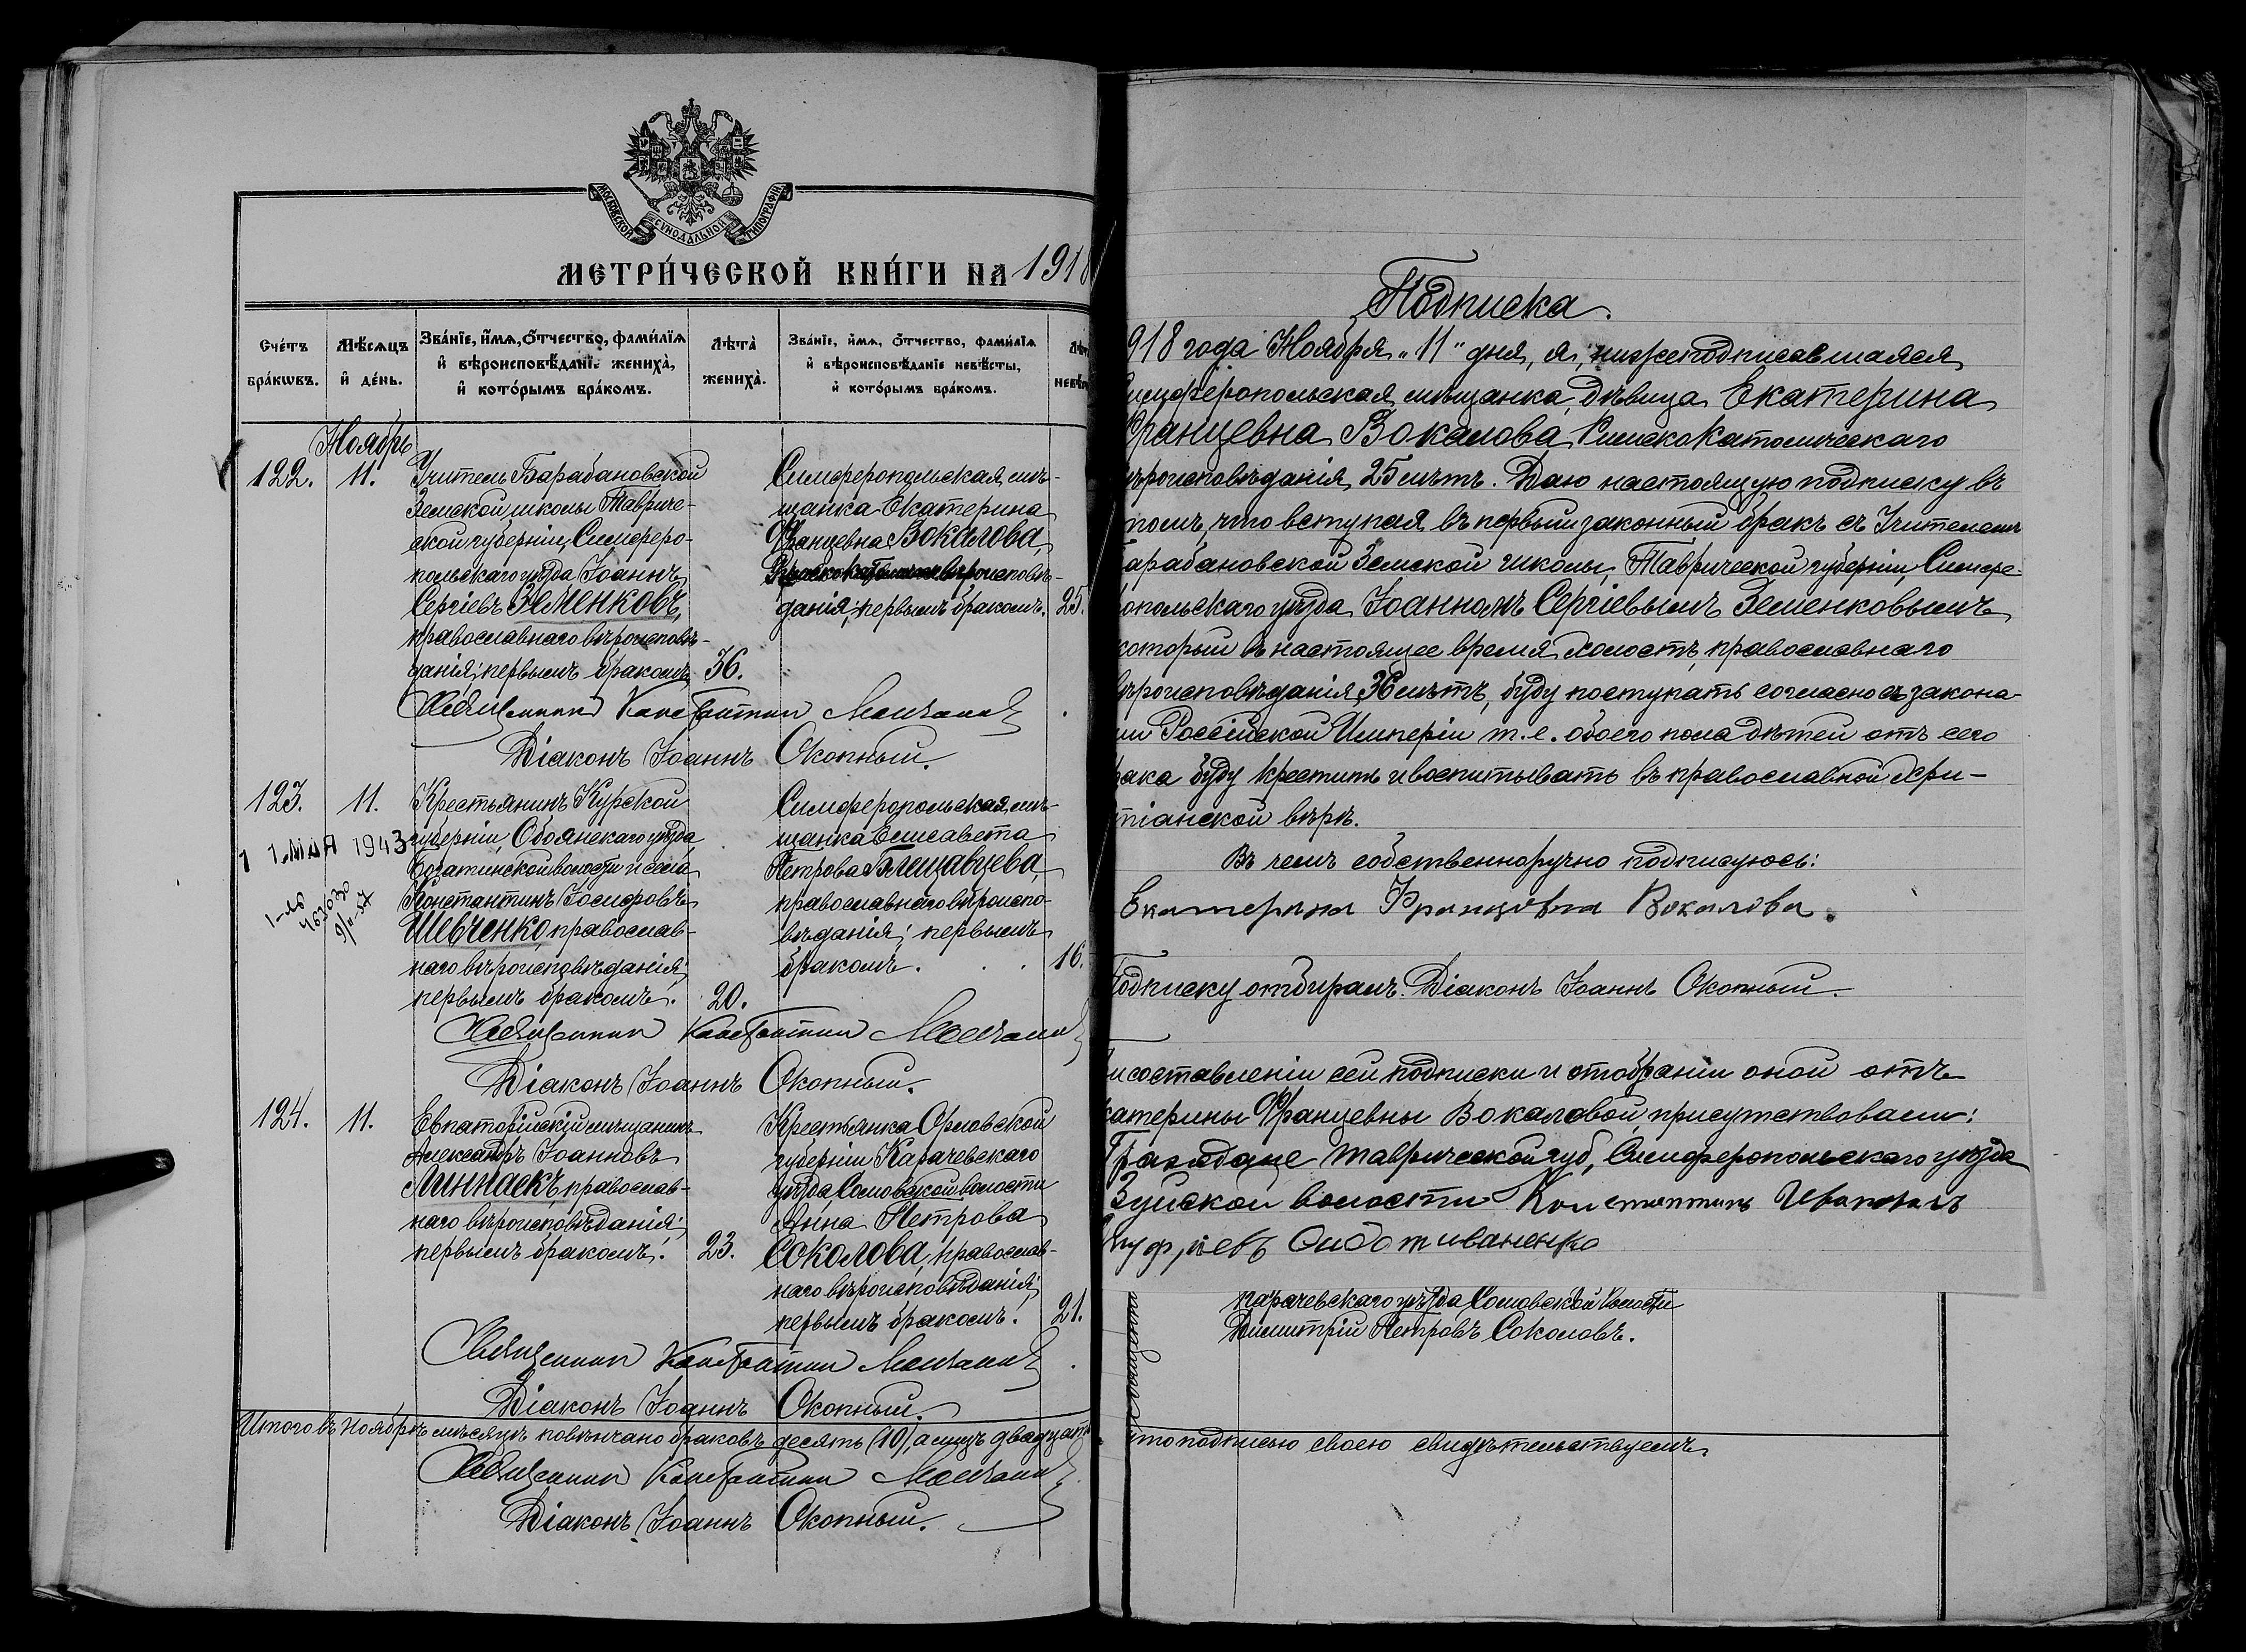 МОСКОВСКОЙ СѴНОДАЛЬНОЙ ТИПОГРАФІИ
МЕТРИ́ЧЕСКОЙ КНИ́ГИ НА 1918
Сче́тъ бра́кωвъ.
Мѣ́сѧцъ и҆ де́нь.
Зва́нїе, и҆́мѧ, ѻ҆́тчество, фами́лїѧ и҆ вѣроисповѣ́данїе жениха̀, и҆ кото́рымъ бра́комъ.
Лѣта̀ жениха̀.
Зва́нїе, и҆́мѧ, ѻ҆́тчество, фами́лїѧ и҆ вѣроисповѣ́данїе невѣ́сты, и҆ кото́рымъ бра́комъ.
Ноябрь
122. 11.
Учитель Барабановской
Земской школы Тавриче-
ской губерніи, Симферо-
польскаго уѣзда Іоаннъ
Сергіевъ Земенковъ,
православнаго вѣроисповѣ-
данія; первымъ бракомъ. 36.
Симферопольская мѣ-
щанка Екатерина
Францевна Вокалова,
Римско Католич. вѣроисповѣ-
данія; первымъ бракомъ. 25.
Священникъ Константинъ
Діаконъ Іоаннъ Окопный.
123. 11.
Крестьянинъ Курской
губерніи, Обоянскаго уѣзда
Богатинской волости и села
Константинъ Іосифовъ
Шевченко, православ-
наго вѣроисповѣданія;
первымъ бракомъ. 20.
1 1 МАЯ 1943
Симферопольская мѣ-
щанка Елисавета
Петрова
православнаго вѣроиспо-
вѣданія; первымъ
бракомъ. 16.
Священникъ Константинъ
Діаконъ Іоаннъ Окопный.
124. 11.
Евпаторійскій мѣщанинъ
Александръ Іоанновъ
Линнаскъ, православ-
наго вѣроисповѣданія;
первымъ бракомъ. 23.
Крестьянка Орловской
губерніи Карачевскаго
уѣзда Сомовской волости
Анна Петрова
Соколова, православ-
наго вѣроисповѣданія;
первымъ бракомъ. 21.
Священникъ Константинъ
Діаконъ Іоаннъ Окопный.
Итого въ Ноябрѣ мѣсяцѣ повѣнчано браковъ десять (10), а лицъ двадцать
Священникъ Константинъ
Діаконъ Іоаннъ Окопный.
Подписка.
918 года Ноября "11" дня, я, нижеподписавшаяся
имферопольская мѣщанка, дѣвица Екатерина
Францевна Вокалова, Римско Католическаго
вѣроисповѣданія, 25 лѣтъ. Даю настоящую подписку въ
томъ, что вступая въ первый законный бракъ съ Учителемъ
арабановской Земской школы, Таврической губерніи, Симфе-
опольскаго уѣзда Іоанномъ Сергіевымъ Земенковымъ
который въ настоящее время холостъ, православнаго
вѣроисповѣданія, 36 лѣтъ, буду поступать согласно съ закона-
ми Россійской Имперіи т.е. обоего пола дѣтей отъ сего
рака буду крестить и воспитывать въ православной Хри-
тіанской вѣрѣ.
Въ чемъ собственноручно подписуюсь:
Екатерина Францовна Вокалова.
Подписку отбиралъ: Діаконъ Іоаннъ Окопный.
и составленіи сей подписки и отобраніи оной отъ
катерины Францевны Вокаловой, присутствовали:
Граждане Таврической губ, Симферопольскаго уѣзда
Зуйской волости Константинъ Ивановъ
карачевскаго уѣзда Сомовской волости
Димитрій Петровъ Соколовъ.
что подписью своею свидѣтельствуемъ